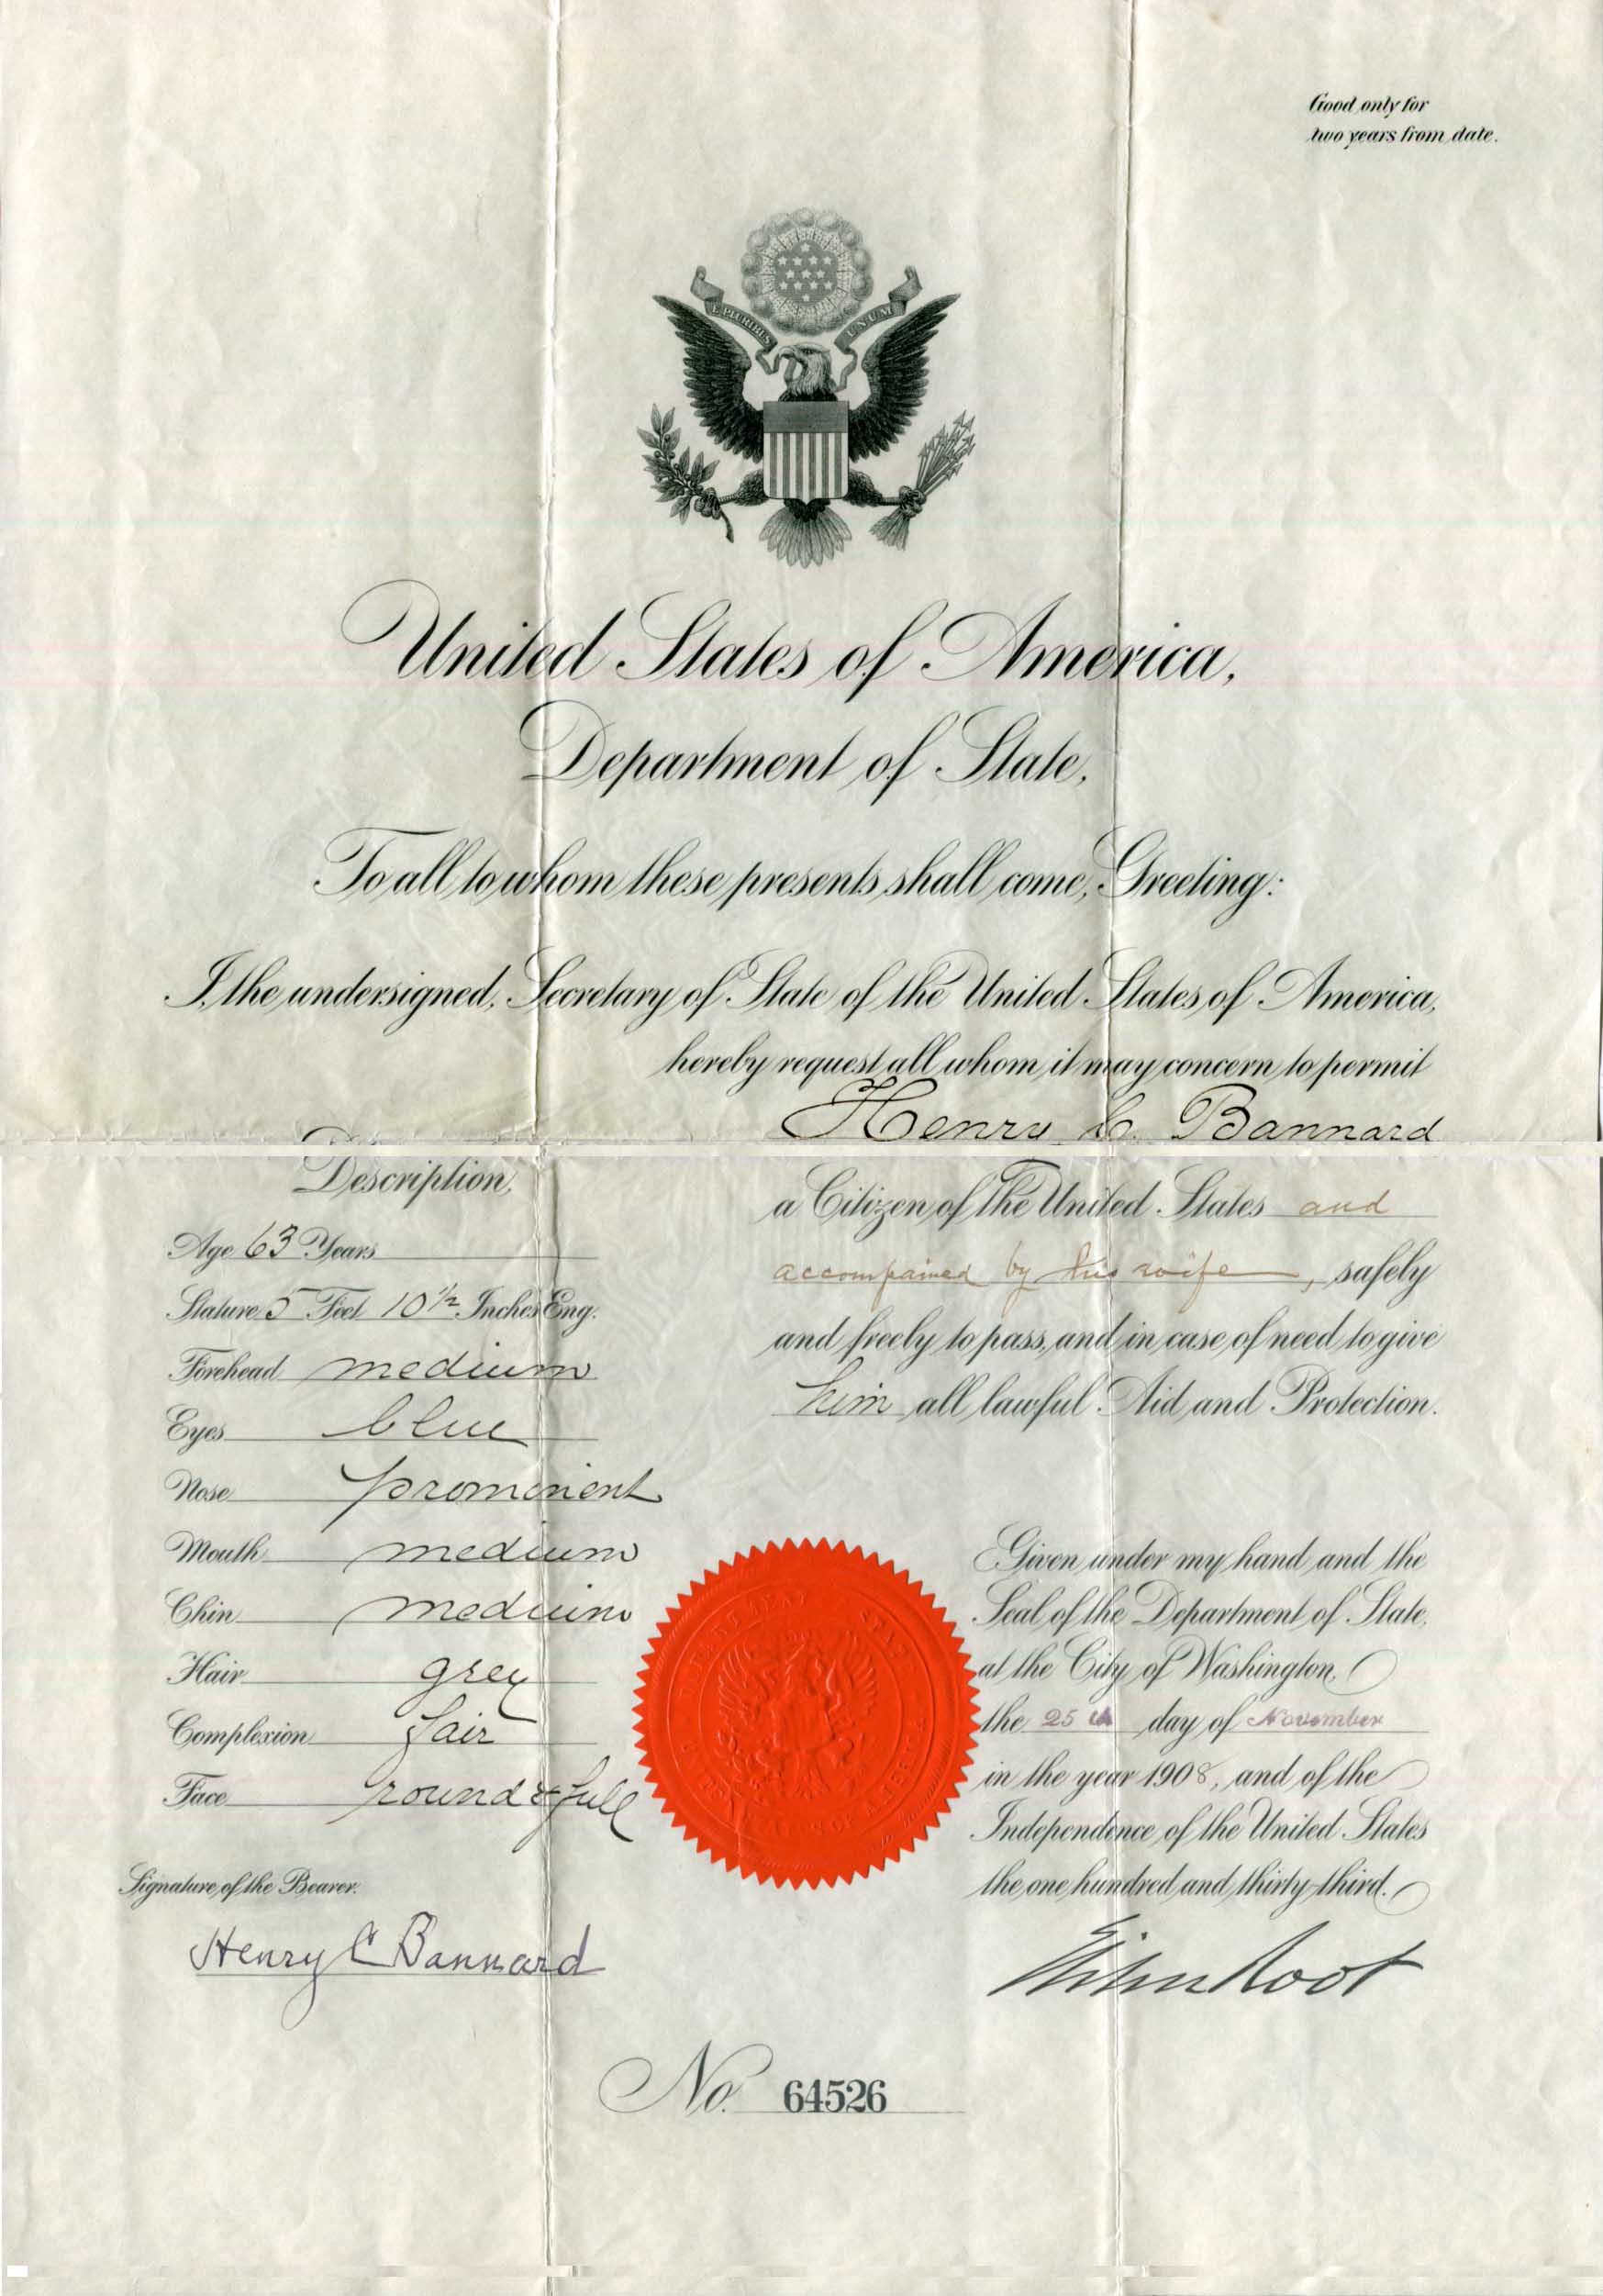 Good only for
two years from date.
E PLURIBUS UNUM
United States of America,
Department of State,
To all to whom these presents shall come, Greeting:
I, the undersigned, Secretary of State of the United States of America,
hereby request all whom it may concern to permit
Henry C. Bannard
a Citizen of the United States and
accompained by his wife, safely
and freely to pass, and in case of need to give
him all lawful Aid and Protection.
Description,
Age 63 Years
Stature 5 Feet 10 1/2 Inches Eng.
Forehead medium
Eyes blue
Nose prominent
Mouth medium
Chin medium
Hair grey
Complexion fair
Face round & full
Signature of the Bearer.
Henry C Bannard
Given under my hand and the
Seal of the Department of State,
at the City of Washington,
the 25th day of November
in the year 1908, and of the
Independence of the United States
the one hundred and thirty-third.
Elihu Root
No. 64526